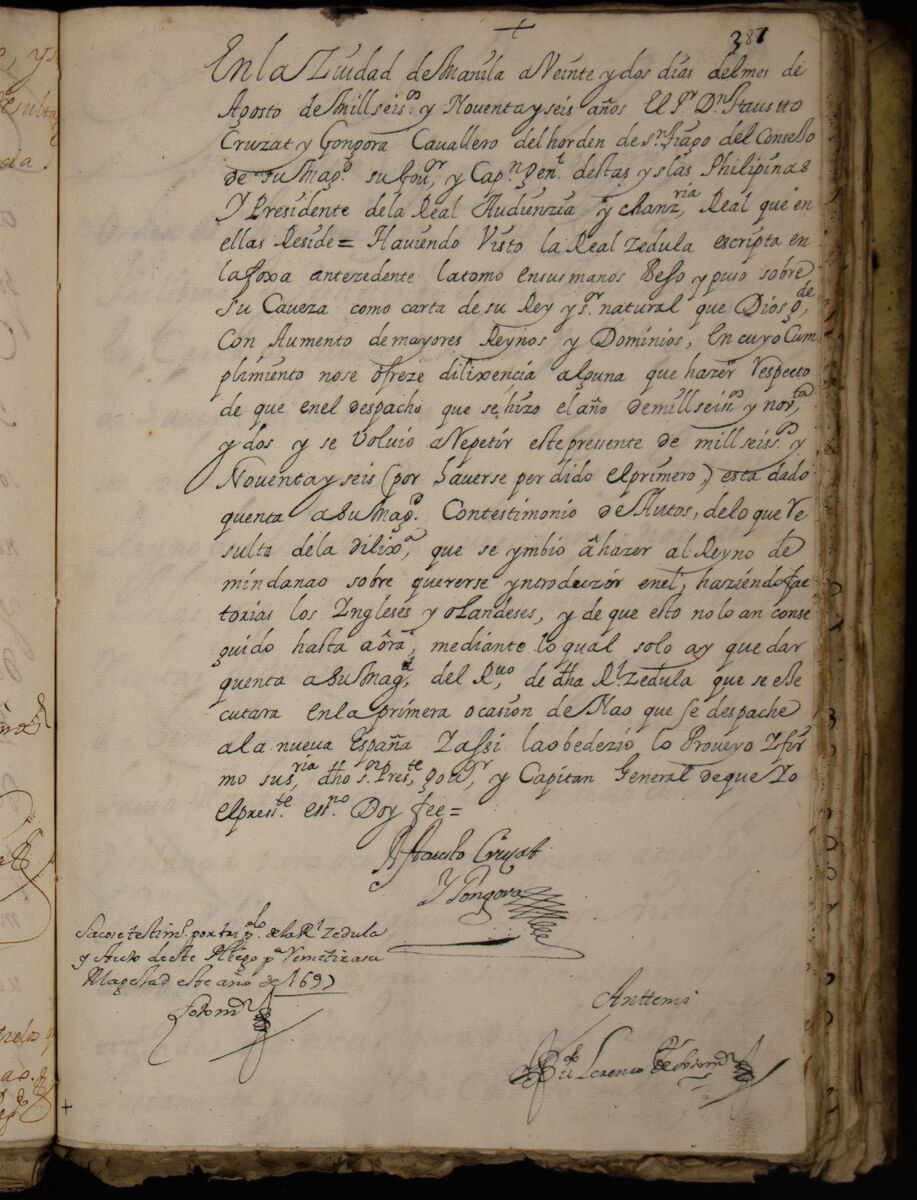 387
En la Ziudad de Manila a Veinte y dos dias del mes de
Agosto de Mill seiss.os y Noventa y seis años El S.r D.n Faustto
Cruzat y Gongora Cavallero del horden de S.n tiago del Consello
de su Mag.d su gov.r, y Cap.n gen.l destas yslas Philipinas
Y Presidente de la Real Audienzia y chanz.ria, Real que en
ellas Reside = Haviendo Visto la Real Zedula escripta en
la foxa antezedente la tomo en sus manos Beso y puso sobre
su Caveza como carta de su Rey y s.or natural que Dios g.de,
con Aumento de mayores Reynos y Dominios, En cuyo Cum
plimiento no se ofreze dilixencia alguna que hazer respecto
de que en el despacho que se hizo el año de mill seis.os y nov.ta
y dos y se volvio a Repetir este pressente de mill seiss.os y
Noventa y seis (por haverse perdido el primero) esta dado
quenta a Su Mag.d Con testimonio de Autos, de lo que Re
sulta de la dilix.a, que se ymbio â hazer al Reyno de
mindanao sobre quererse yntroduzir en el, haziendo fac
torias los Ingleses y olandeses, y de que esto no lo an conse
guido hasta aôra, mediante lo qual solo ay que dar
quenta a Su Mag.d, del R.vo, de dha R.l Zedula que se exe
cutara en la primera ocasion de Nao que se despache
a la nueva España Y assi la obedezio, lo Proveyo Y fir
mo su s.ria, dho s.r Pres.te, gov.r, y Capitan General de que Yo
el pres.te ess.no Doy fee =
D Fausto Cruzat
Y Gongora
Sacose testim.o por tri p.do de la R.l Zedula
y Auto de este Pliego p.a Remitir a su
Magestad este año de 1697
Antte mi
Lorenzo